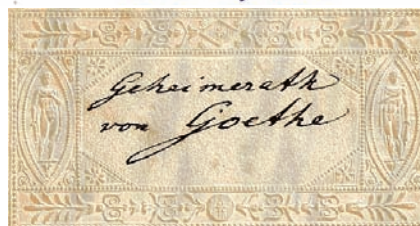 Geheimerath
von Goethe